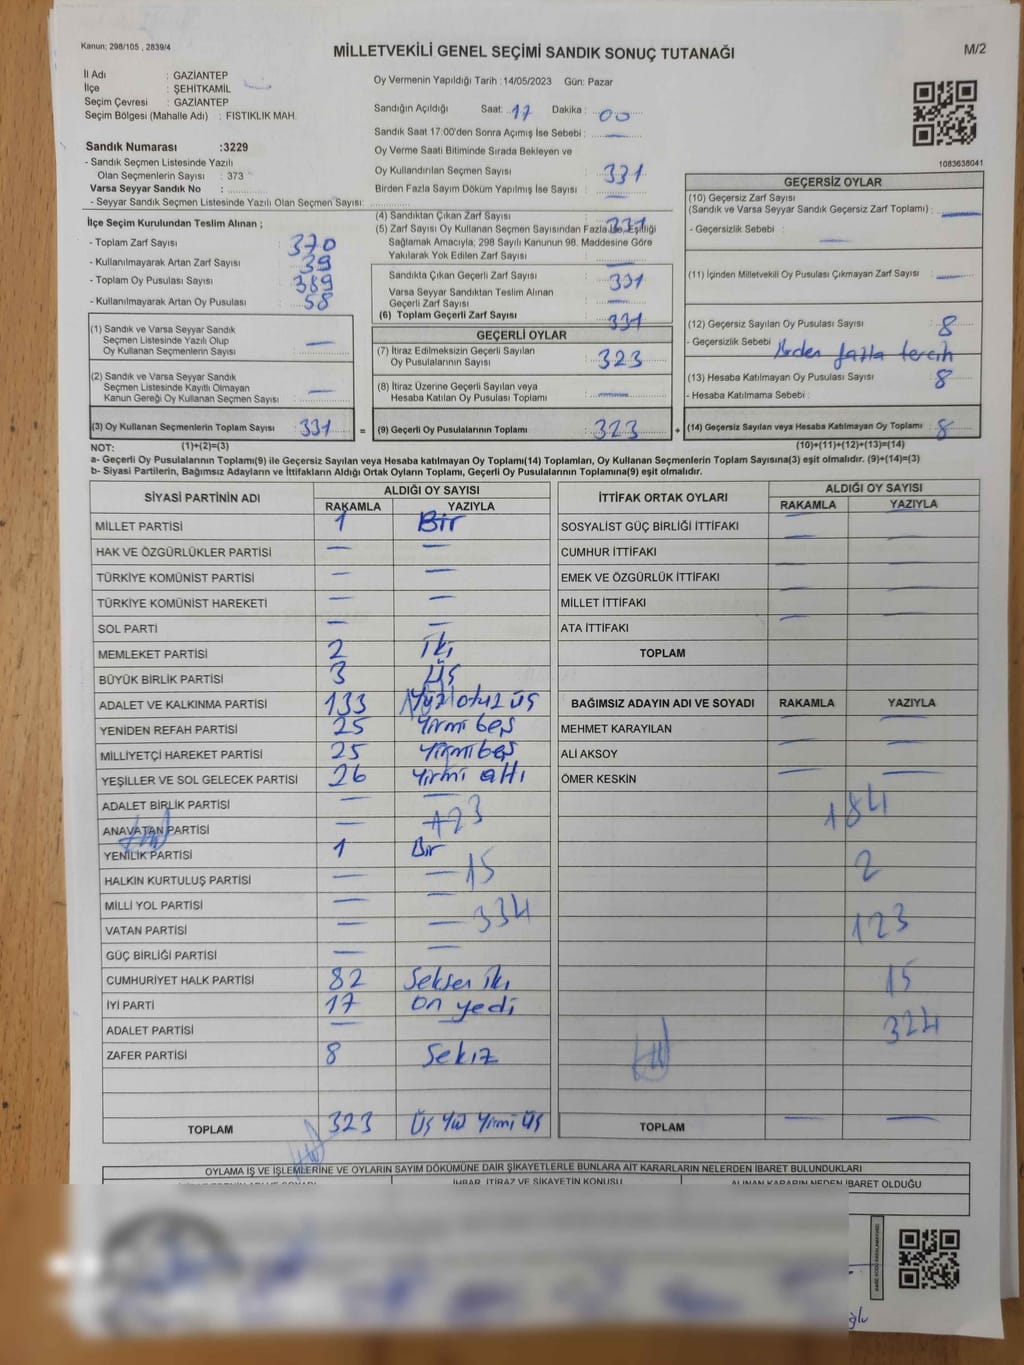 Kanun: 298/105 , 2839/4
MİLLETVEKİLİ GENEL SEÇİMİ SANDIK SONUÇ TUTANAĞI
M/2
İl Adı : GAZİANTEP
İlçe : ŞEHİTKAMİL
Seçim Çevresi : GAZİANTEP
Seçim Bölgesi (Mahalle Adı) : FISTIKLIK MAH.
Sandık Numarası :3229
- Sandık Seçmen Listesinde Yazılı
Olan Seçmenlerin Sayısı : 373
Varsa Seyyar Sandık No :
- Seyyar Sandık Seçmen Listesinde Yazılı Olan Seçmen Sayısı:
Oy Vermenin Yapıldığı Tarih :14/05/2023 Gün: Pazar
Sandığın Açıldığı Saat: 17 Dakika : 00
Sandık Saat 17:00'den Sonra Açımış İse Sebebi : —
Oy Verme Saati Bitiminde Sırada Bekleyen ve
Oy Kullandırılan Seçmen Sayısı : 331
Birden Fazla Sayım Döküm Yapılmış İse Sayısı : —
1083638041
İlçe Seçim Kurulundan Teslim Alınan ;
- Toplam Zarf Sayısı : 370
- Kullanılmayarak Artan Zarf Sayısı : 39
- Toplam Oy Pusulası Sayısı : 389
- Kullanılmayarak Artan Oy Pusulası : 58
(1) Sandık ve Varsa Seyyar Sandık
Seçmen Listesinde Yazılı Olup
Oy Kullanan Seçmenlerin Sayısı : —
(2) Sandık ve Varsa Seyyar Sandık
Seçmen Listesinde Kayıtlı Olmayan
Kanun Gereği Oy Kullanan Seçmen Sayısı : —
(3) Oy Kullanan Seçmenlerin Toplam Sayısı : 331 =
(4) Sandıktan Çıkan Zarf Sayısı : 331
(5) Zarf Sayısı Oy Kullanan Seçmen Sayısından Fazla İse, Eşitliği
Sağlamak Amacıyla, 298 Sayılı Kanunun 98. Maddesine Göre
Yakılarak Yok Edilen Zarf Sayısı :
Sandıkta Çıkan Geçerli Zarf Sayısı : 331
Varsa Seyyar Sandıktan Teslim Alınan
Geçerli Zarf Sayısı : —
(6) Toplam Geçerli Zarf Sayısı : 331
GEÇERLİ OYLAR
(7) İtiraz Edilmeksizin Geçerli Sayılan
Oy Pusulasının Sayısı : 323
(8) İtiraz Üzerine Geçerli Sayılan veya
Hesaba Katılan Oy Pusulası Toplamı : —
(9) Geçerli Oy Pusulalarının Toplamı : 323 +
GEÇERSİZ OYLAR
(10) Geçersiz Zarf Sayısı
(Sandık ve Varsa Seyyar Sandık Geçersiz Zarf Toplamı) : —
- Geçersizlik Sebebi : —
(11) İçinden Milletvekili Oy Pusulası Çıkmayan Zarf Sayısı : —
(12) Geçersiz Sayılan Oy Pusulası Sayısı : 8
- Geçersizlik Sebebi : Birden fazla tercih
(13) Hesaba Katılmayan Oy Pusulası Sayısı : 8
- Hesaba Katılmama Sebebi :
(14) Geçersiz Sayılan veya Hesaba Katılmayan Oy Toplamı : 8
NOT: (1)+(2)=(3)
(10)+(11)+(12)+(13)=(14)
a- Geçerli Oy Pusulalarının Toplamı(9) ile Geçersiz Sayılan veya Hesaba katılmayan Oy Toplamı(14) Toplamları, Oy Kullanan Seçmenlerin Toplam Sayısına(3) eşit olmalıdır. (9)+(14)=(3)
b- Siyasi Partilerin, Bağımsız Adayların ve İttifakların Aldığı Ortak Oyların Toplamı, Geçerli Oy Pusulalarının Toplamına(9) eşit olmalıdır.
SİYASİ PARTİNİN ADI ALDIĞI OY SAYISI
RAKAMLA YAZIYLA
MİLLET PARTİSİ 1 Bir
HAK VE ÖZGÜRLÜKLER PARTİSİ — —
TÜRKİYE KOMÜNİST PARTİSİ — —
TÜRKİYE KOMÜNİST HAREKETİ — —
SOL PARTİ — —
MEMLEKET PARTİSİ 2 İki
BÜYÜK BİRLİK PARTİSİ 3 Üç
ADALET VE KALKINMA PARTİSİ 133 Yüz otuz üç
YENİDEN REFAH PARTİSİ 25 Yirmi beş
MİLLİYETÇİ HAREKET PARTİSİ 25 Yirmi beş
YEŞİLLER VE SOL GELECEK PARTİSİ 26 Yirmi altı
ADALET BİRLİK PARTİSİ — —
ANAVATAN PARTİSİ — 123
YENİLİK PARTİSİ 1 Bir
HALKIN KURTULUŞ PARTİSİ — — 15
MİLLİ YOL PARTİSİ — —
334
VATAN PARTİSİ — —
GÜÇ BİRLİĞİ PARTİSİ — —
CUMHURİYET HALK PARTİSİ 82 Seksen iki
İYİ PARTİ 17 On yedi
ADALET PARTİSİ — —
ZAFER PARTİSİ 8 Sekiz
TOPLAM 323 Üç Yüz Yirmi Üç
İTTİFAK ORTAK OYLARI ALDIĞI OY SAYISI
RAKAMLA YAZIYLA
SOSYALİST GÜÇ BİRLİĞİ İTTİFAKI — —
CUMHUR İTTİFAKI — —
EMEK VE ÖZGÜRLÜK İTTİFAKI — —
MİLLET İTTİFAKI — —
ATA İTTİFAKI — —
TOPLAM
BAĞIMSIZ ADAYIN ADI VE SOYADI RAKAMLA YAZIYLA
MEHMET KARAYILAN — —
ALİ AKSOY — —
ÖMER KESKİN — —
184
2
123
15
324
TOPLAM — —
OYLAMA İŞ VE İŞLEMLERİNE VE OYLARIN SAYIM DÖKÜMÜNE DAİR ŞİKAYETLERLE BUNLARA AİT KARARLARIN NELERDEN İBARET BULUNDUKLARI
İHBAR, İTİRAZ VE ŞİKAYETİN KONUSU
ALINAN KARARIN NEDEN İBARET OLDUĞU